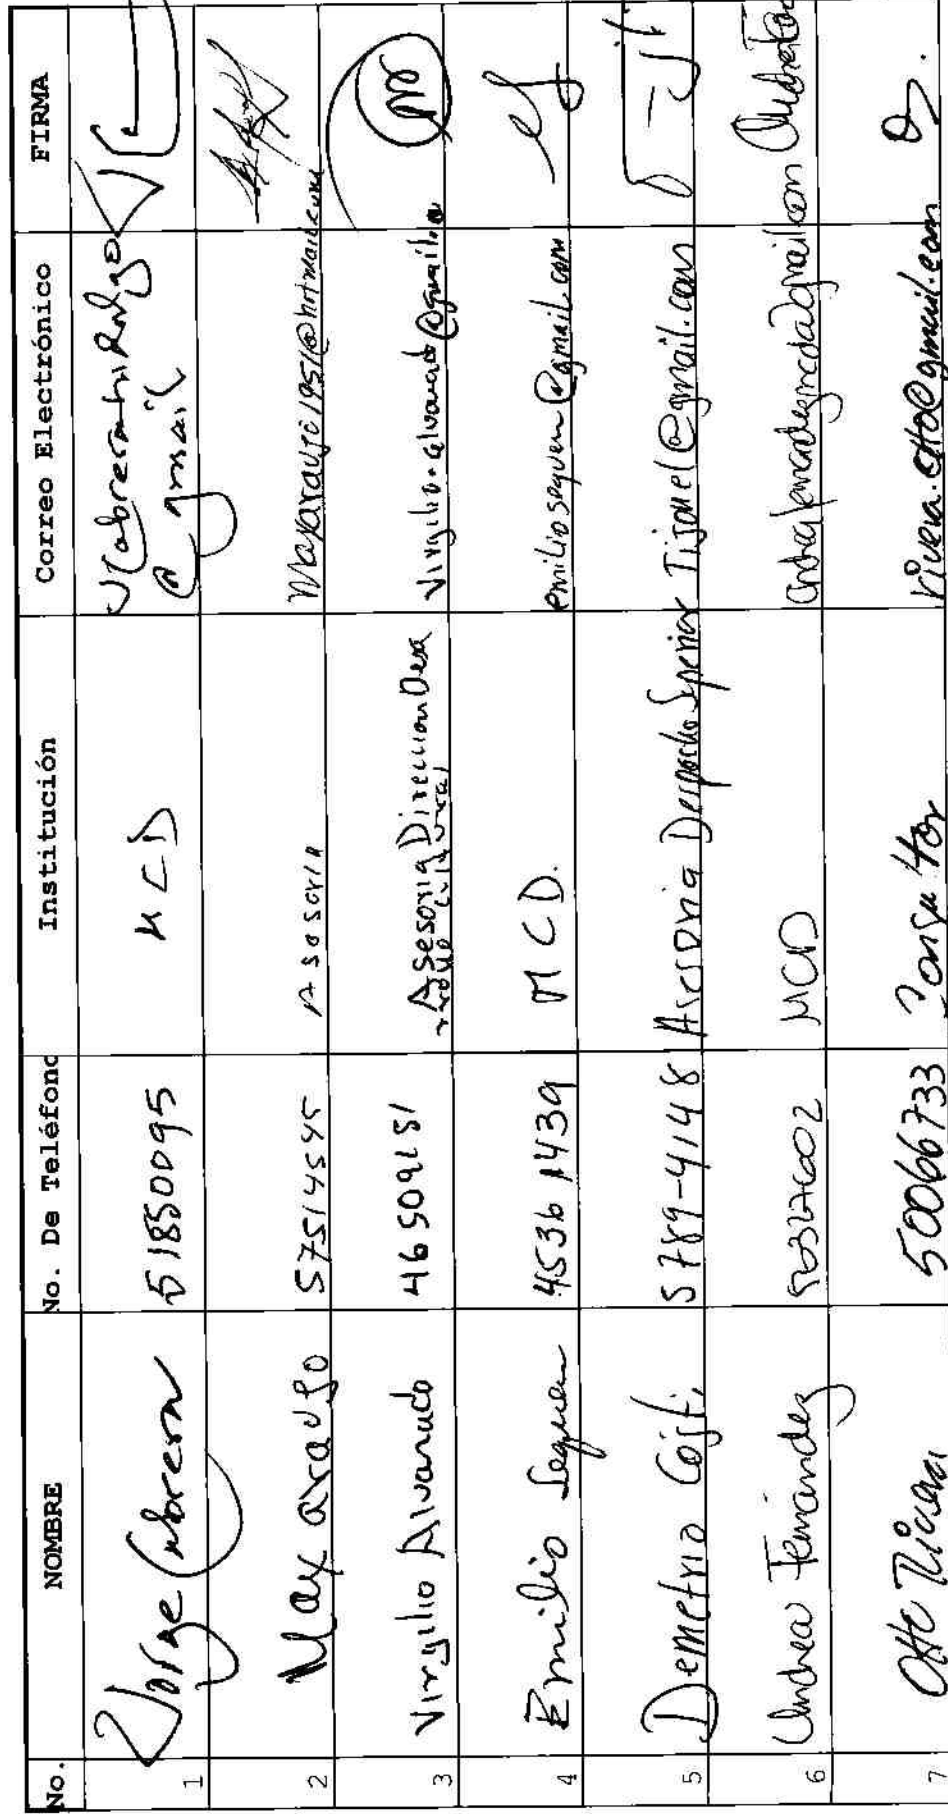 No. NOMBRE No. De Teléfono Institución Correo Electrónico FIRMA
1 Jorge Cabrera 51850095 MCD
@gmail
2 Max Araujo 57514545 Asesoria maxaraujo1951@hotmail.com
3 Virgilio Alvarado 46509251 Asesoria Direccion Desa
virgilio.alvarado@gmail.co
4 Emilio Sequen 45361439 MCD. emiliosequen@gmail.com
5 Demetrio Cojtí. 5789-4148 Asesoria Despacho Superior Tijonel@gmail.com
6 Andrea Fernandez MCD
7 Otto Rivera 50066733 Consultor rivera.otto@gmail.com